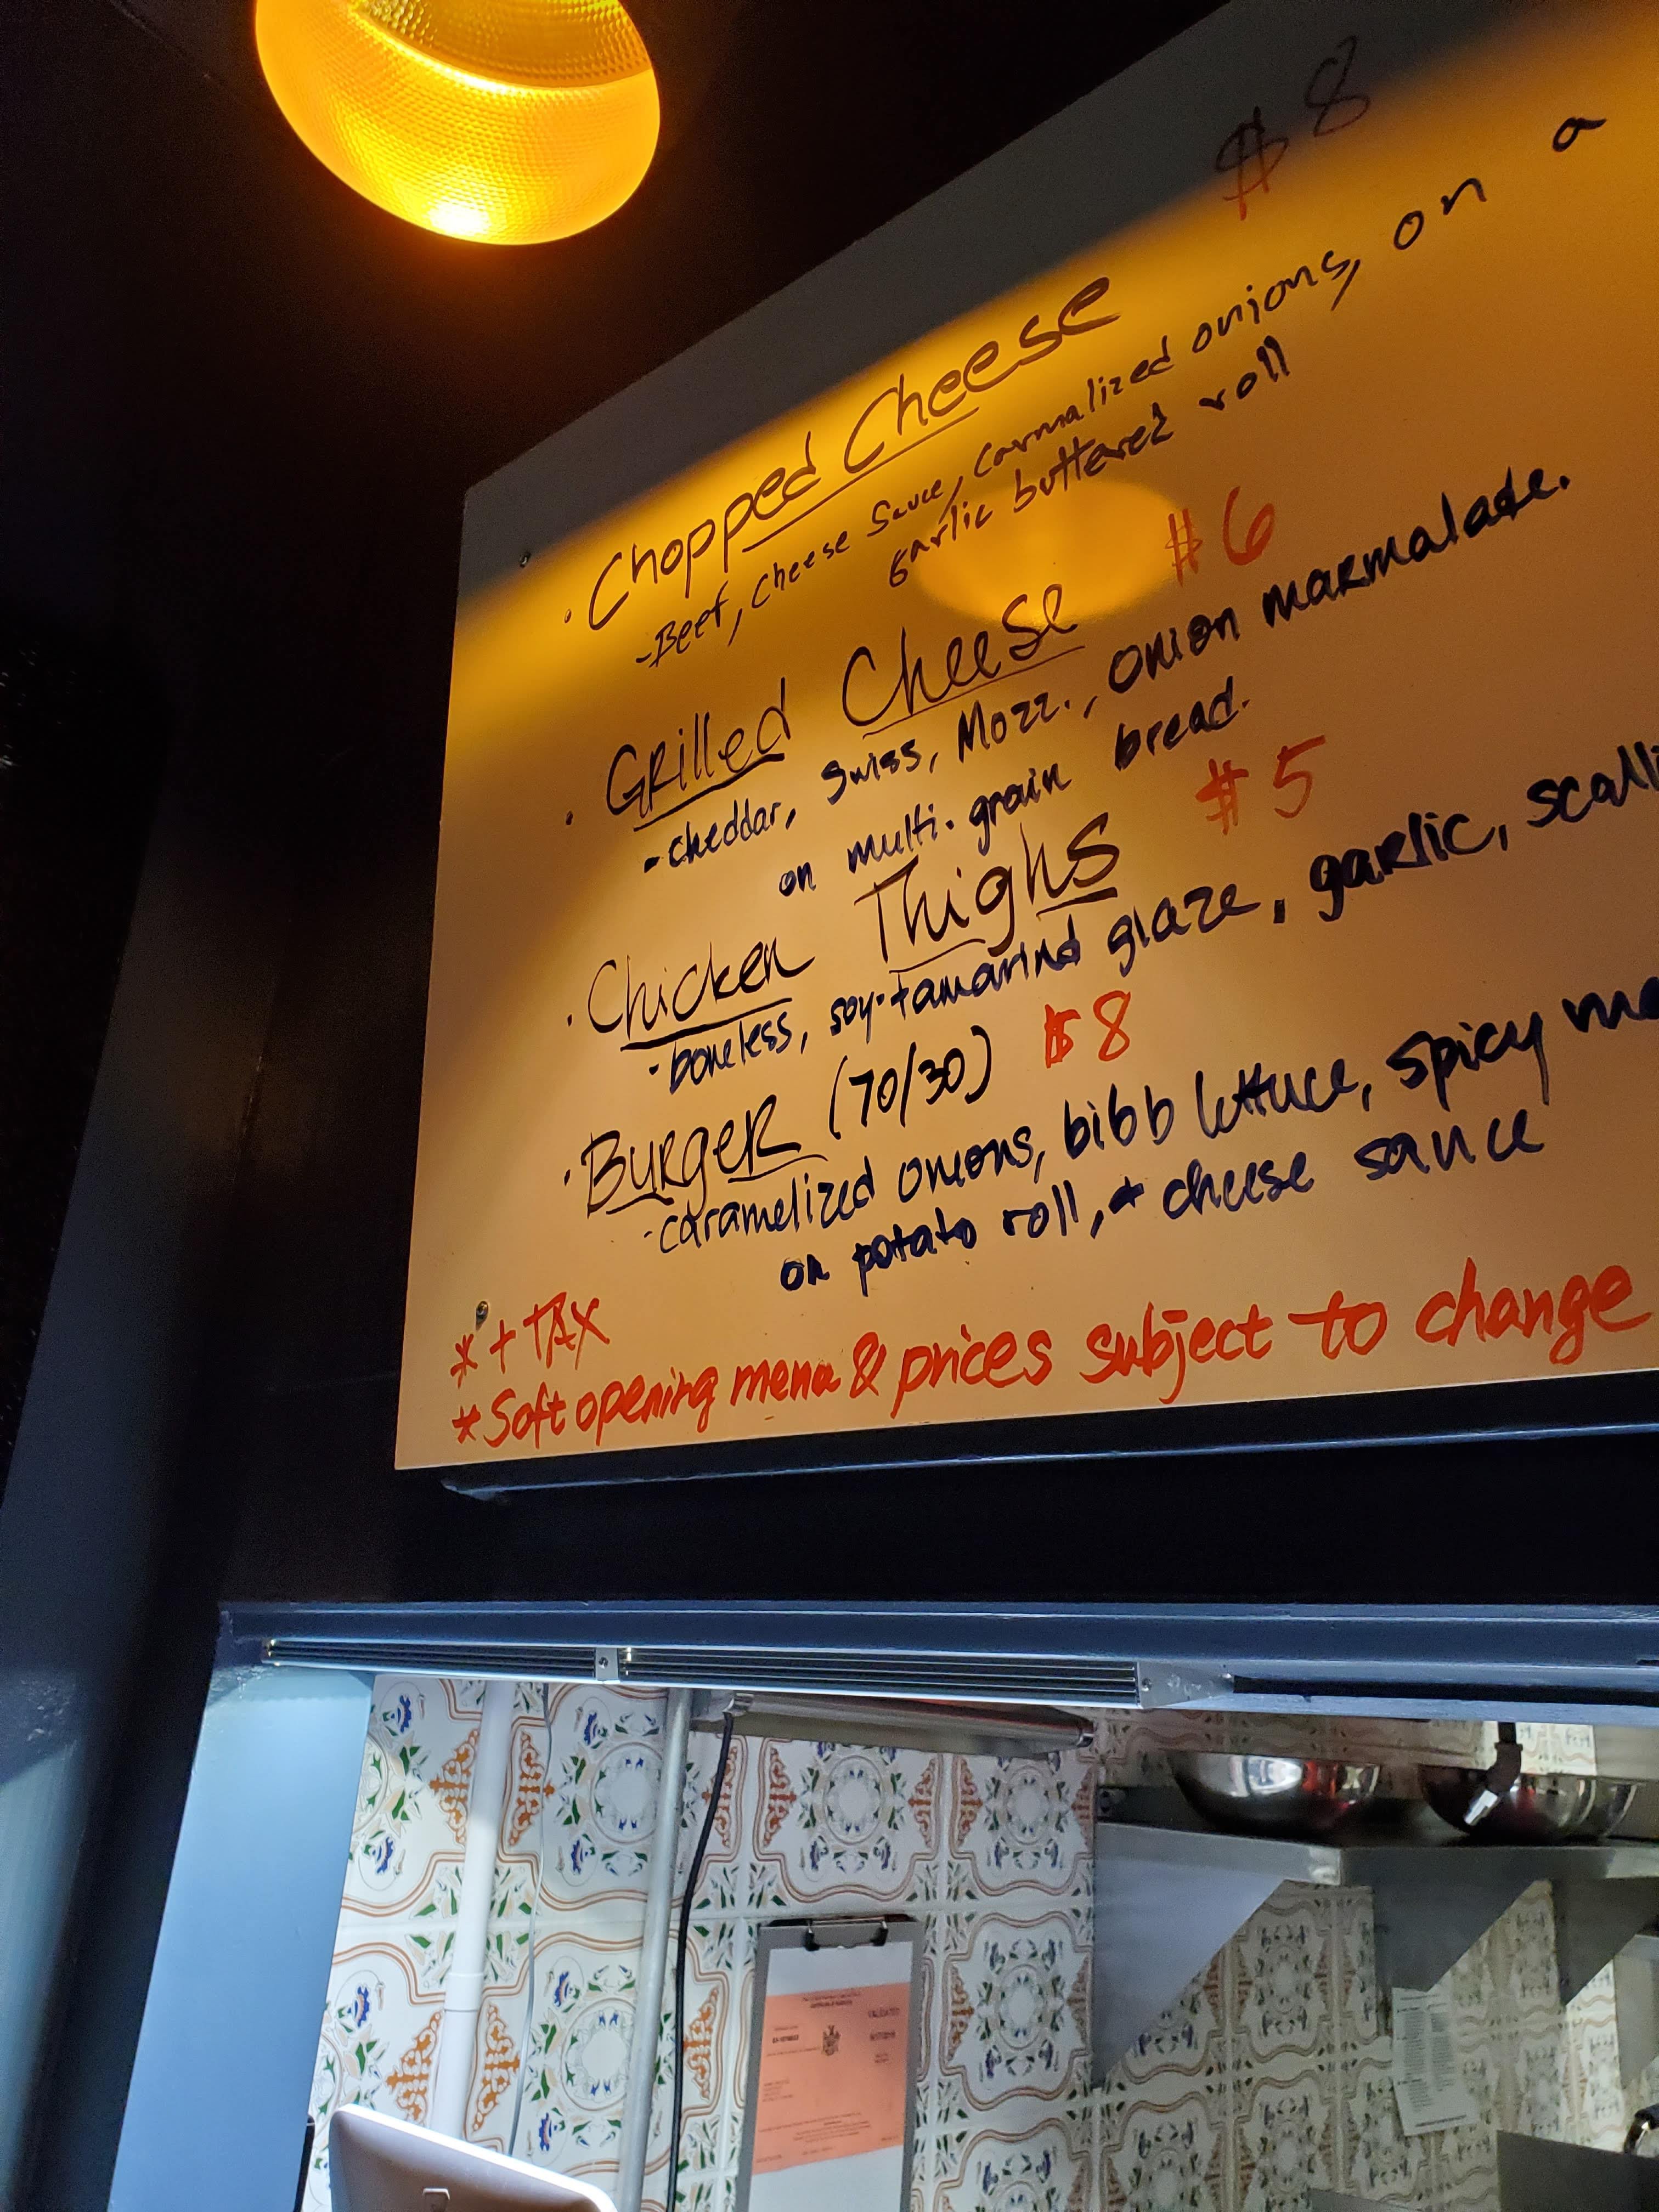 · Chopped Cheese $8
-Beef, Cheese Sauce, Carmalized onions, on a
garlic buttered roll
· Grilled Cheese $6
-cheddar, Swiss, Mozz., onion marmalade.
on multi-grain bread.
· Chicken Thighs $5
-boneless, soy-tamarind glaze, garlic,
· Burger (70/30) $8
-caramelized onions, bibb lettuce, spicy
on potato roll, + cheese sauce
* + TAX
* Soft opening menu & prices subject to change